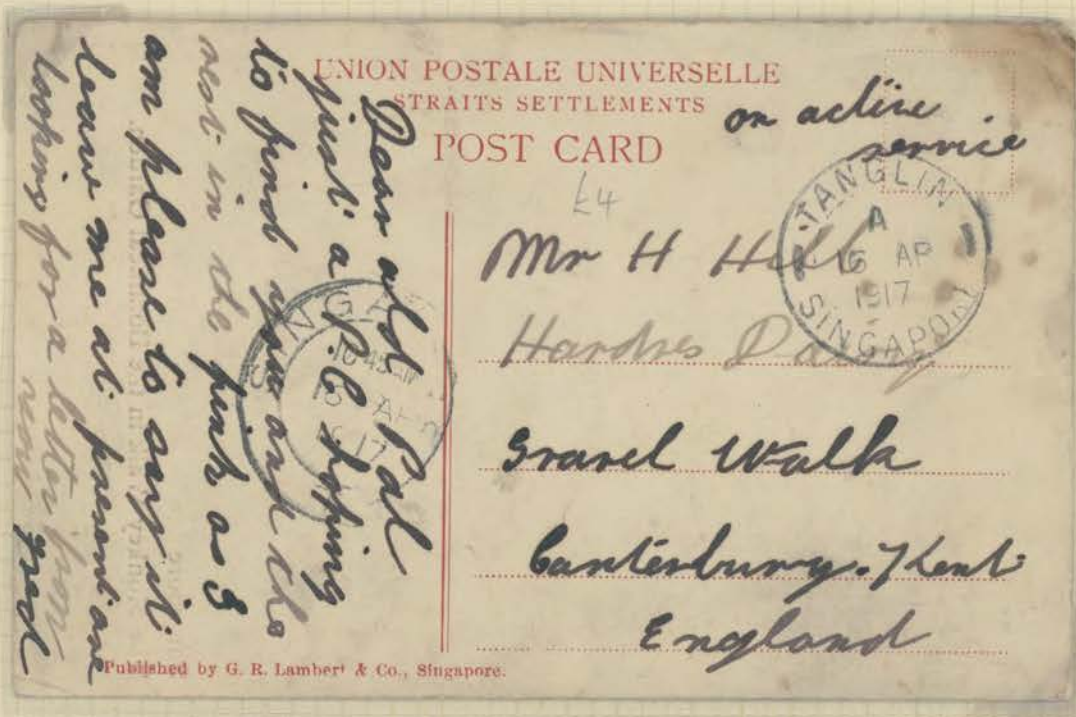 UNION POSTALE UNIVERSELLE
STRAITS SETTLEMENTS
POST CARD
on active
service
£4
TANGLIN
A
16 AP
1917
SINGAPORE
Mr H Hill
Hardres
Gravel Walk
Canterbury. Kent
England
Dear old Pal
just a P.C. hoping
to find you and the
rest in the pink as I
am please to say it
leave me at present am
looking for a letter from
SINGAP
10 45
16 AP
1917
Published by G. R. Lambert & Co., Singapore.